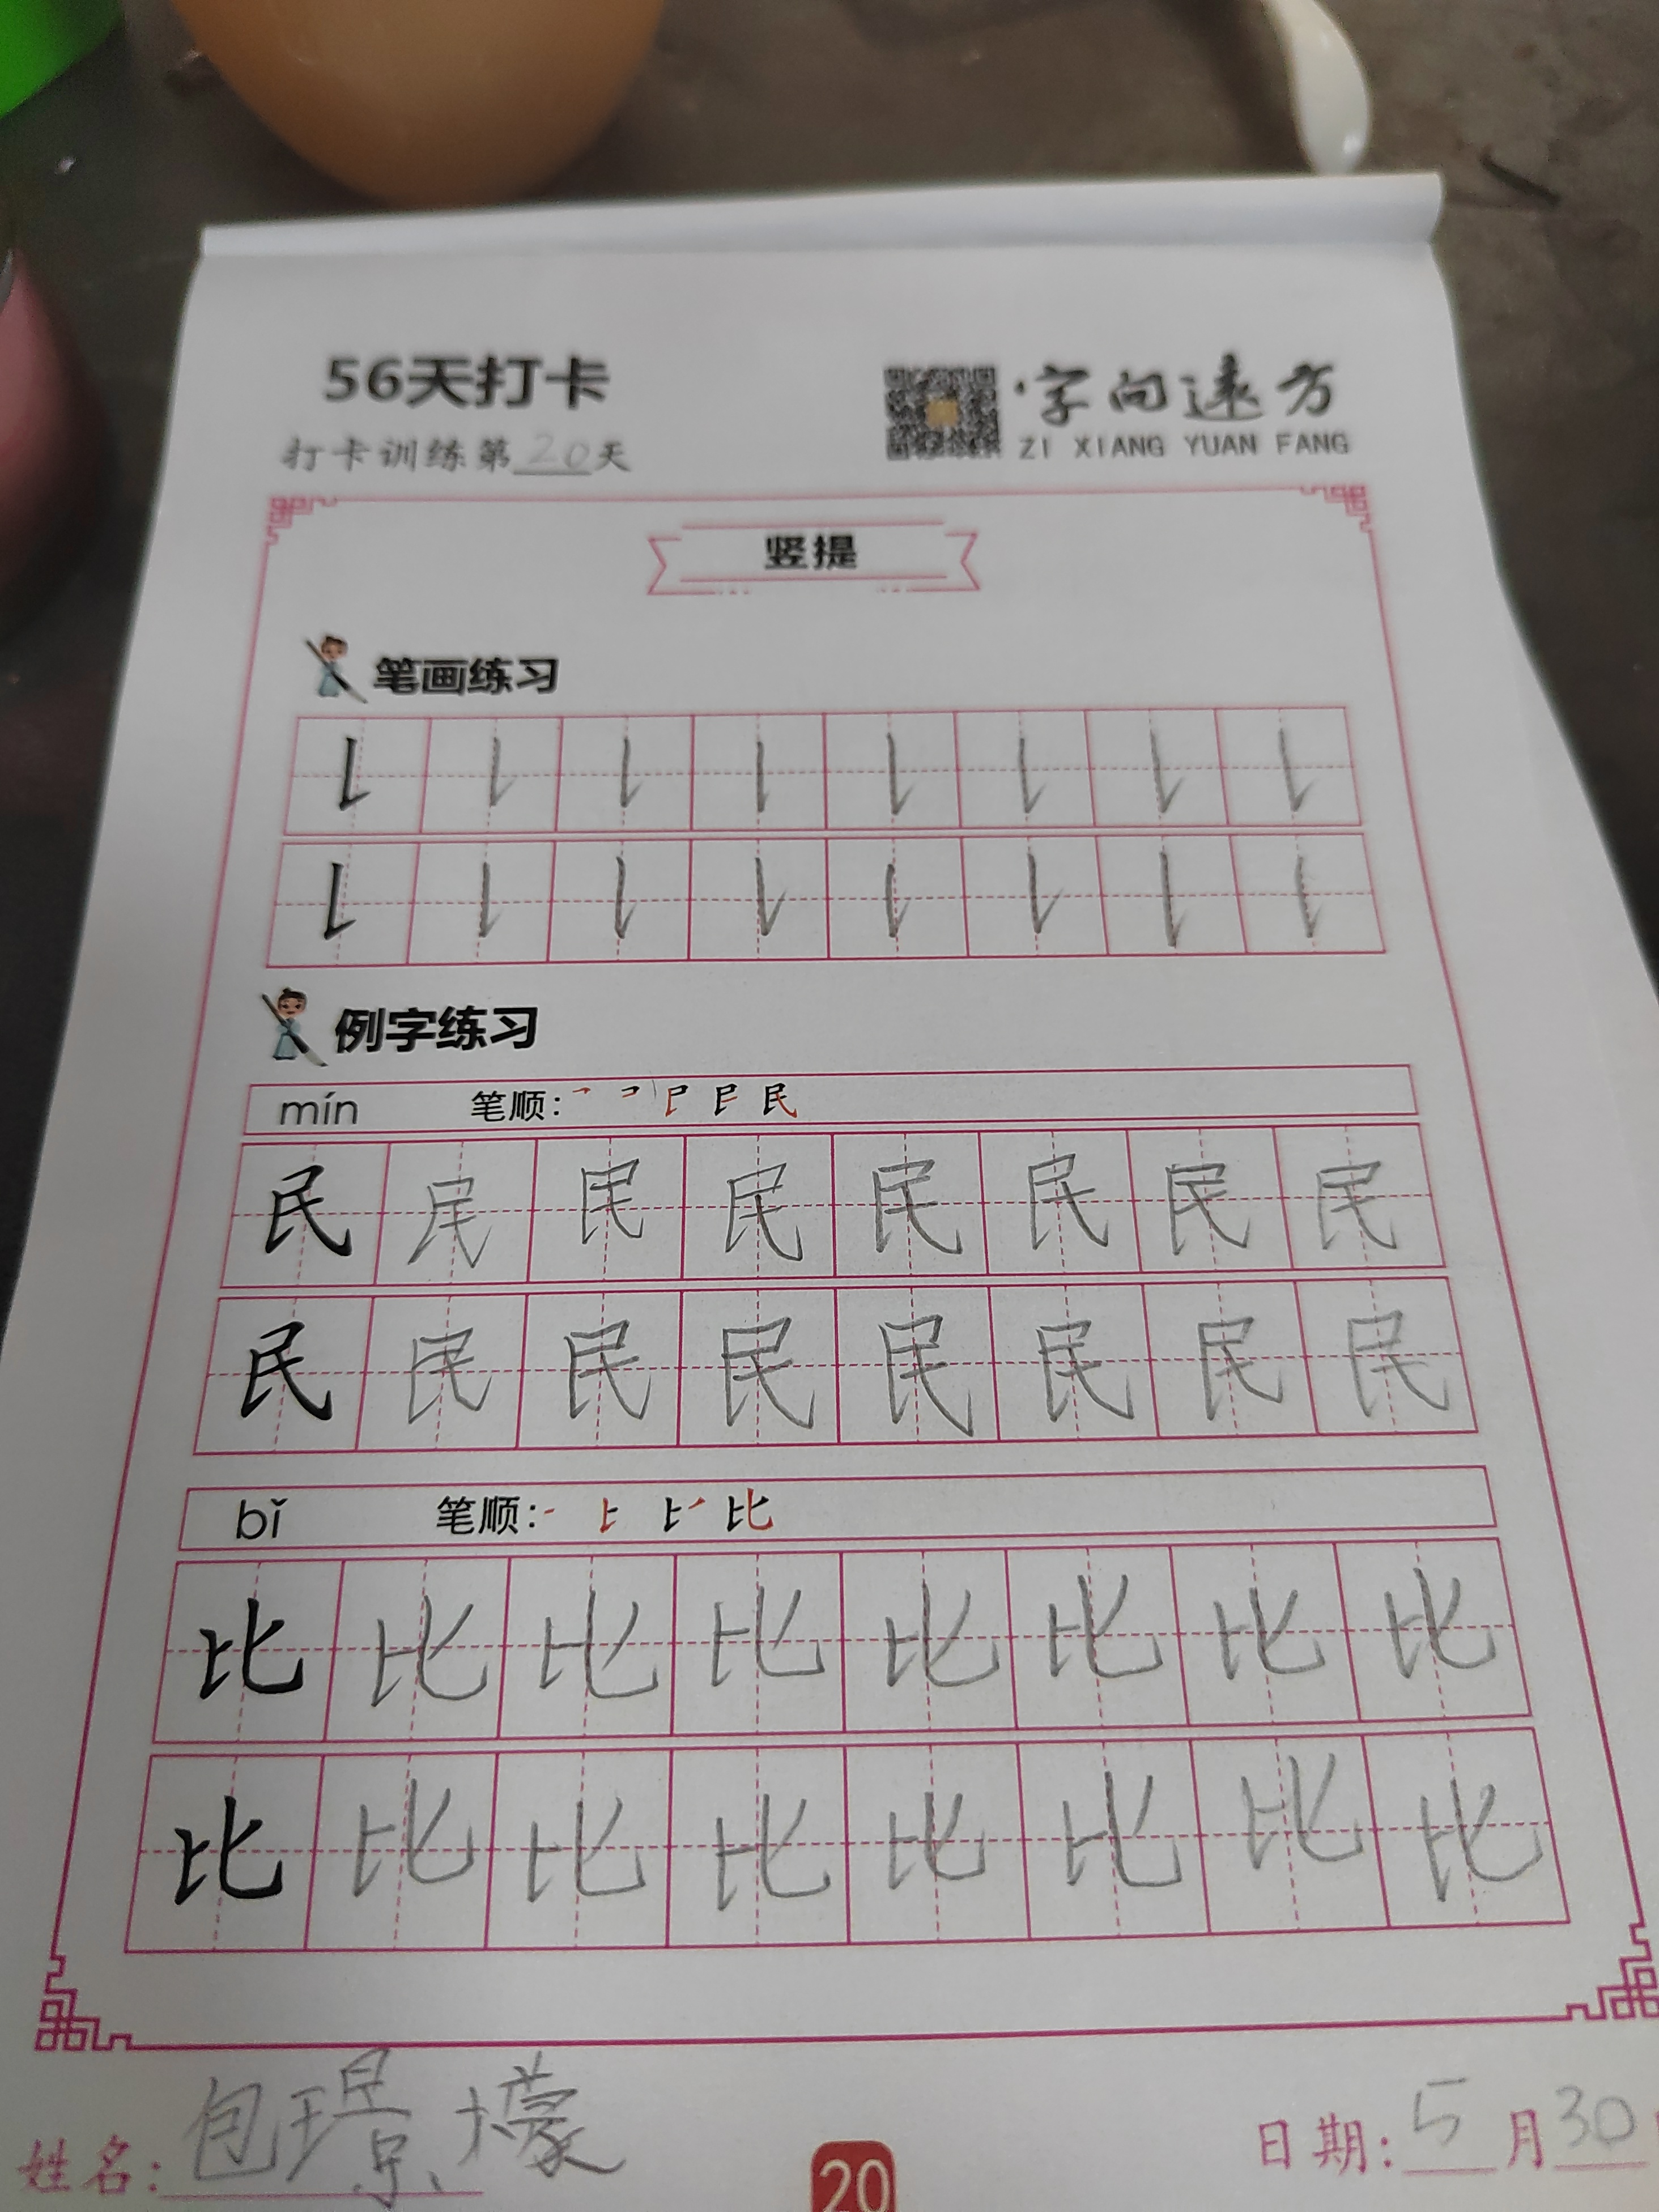 56天打卡
字向远方
ZI XIANG YUAN FANG
打卡训练第20天
竖提
笔画练习
例字练习
mín 笔顺: 民
民 民 民 民 民 民 民 民
民 民 民 民 民 民 民 民
bǐ 笔顺: 比
比 比 比 比 比 比 比 比
比 比 比 比 比 比 比 比
姓名: 包璟檬
日期: 5月30
20